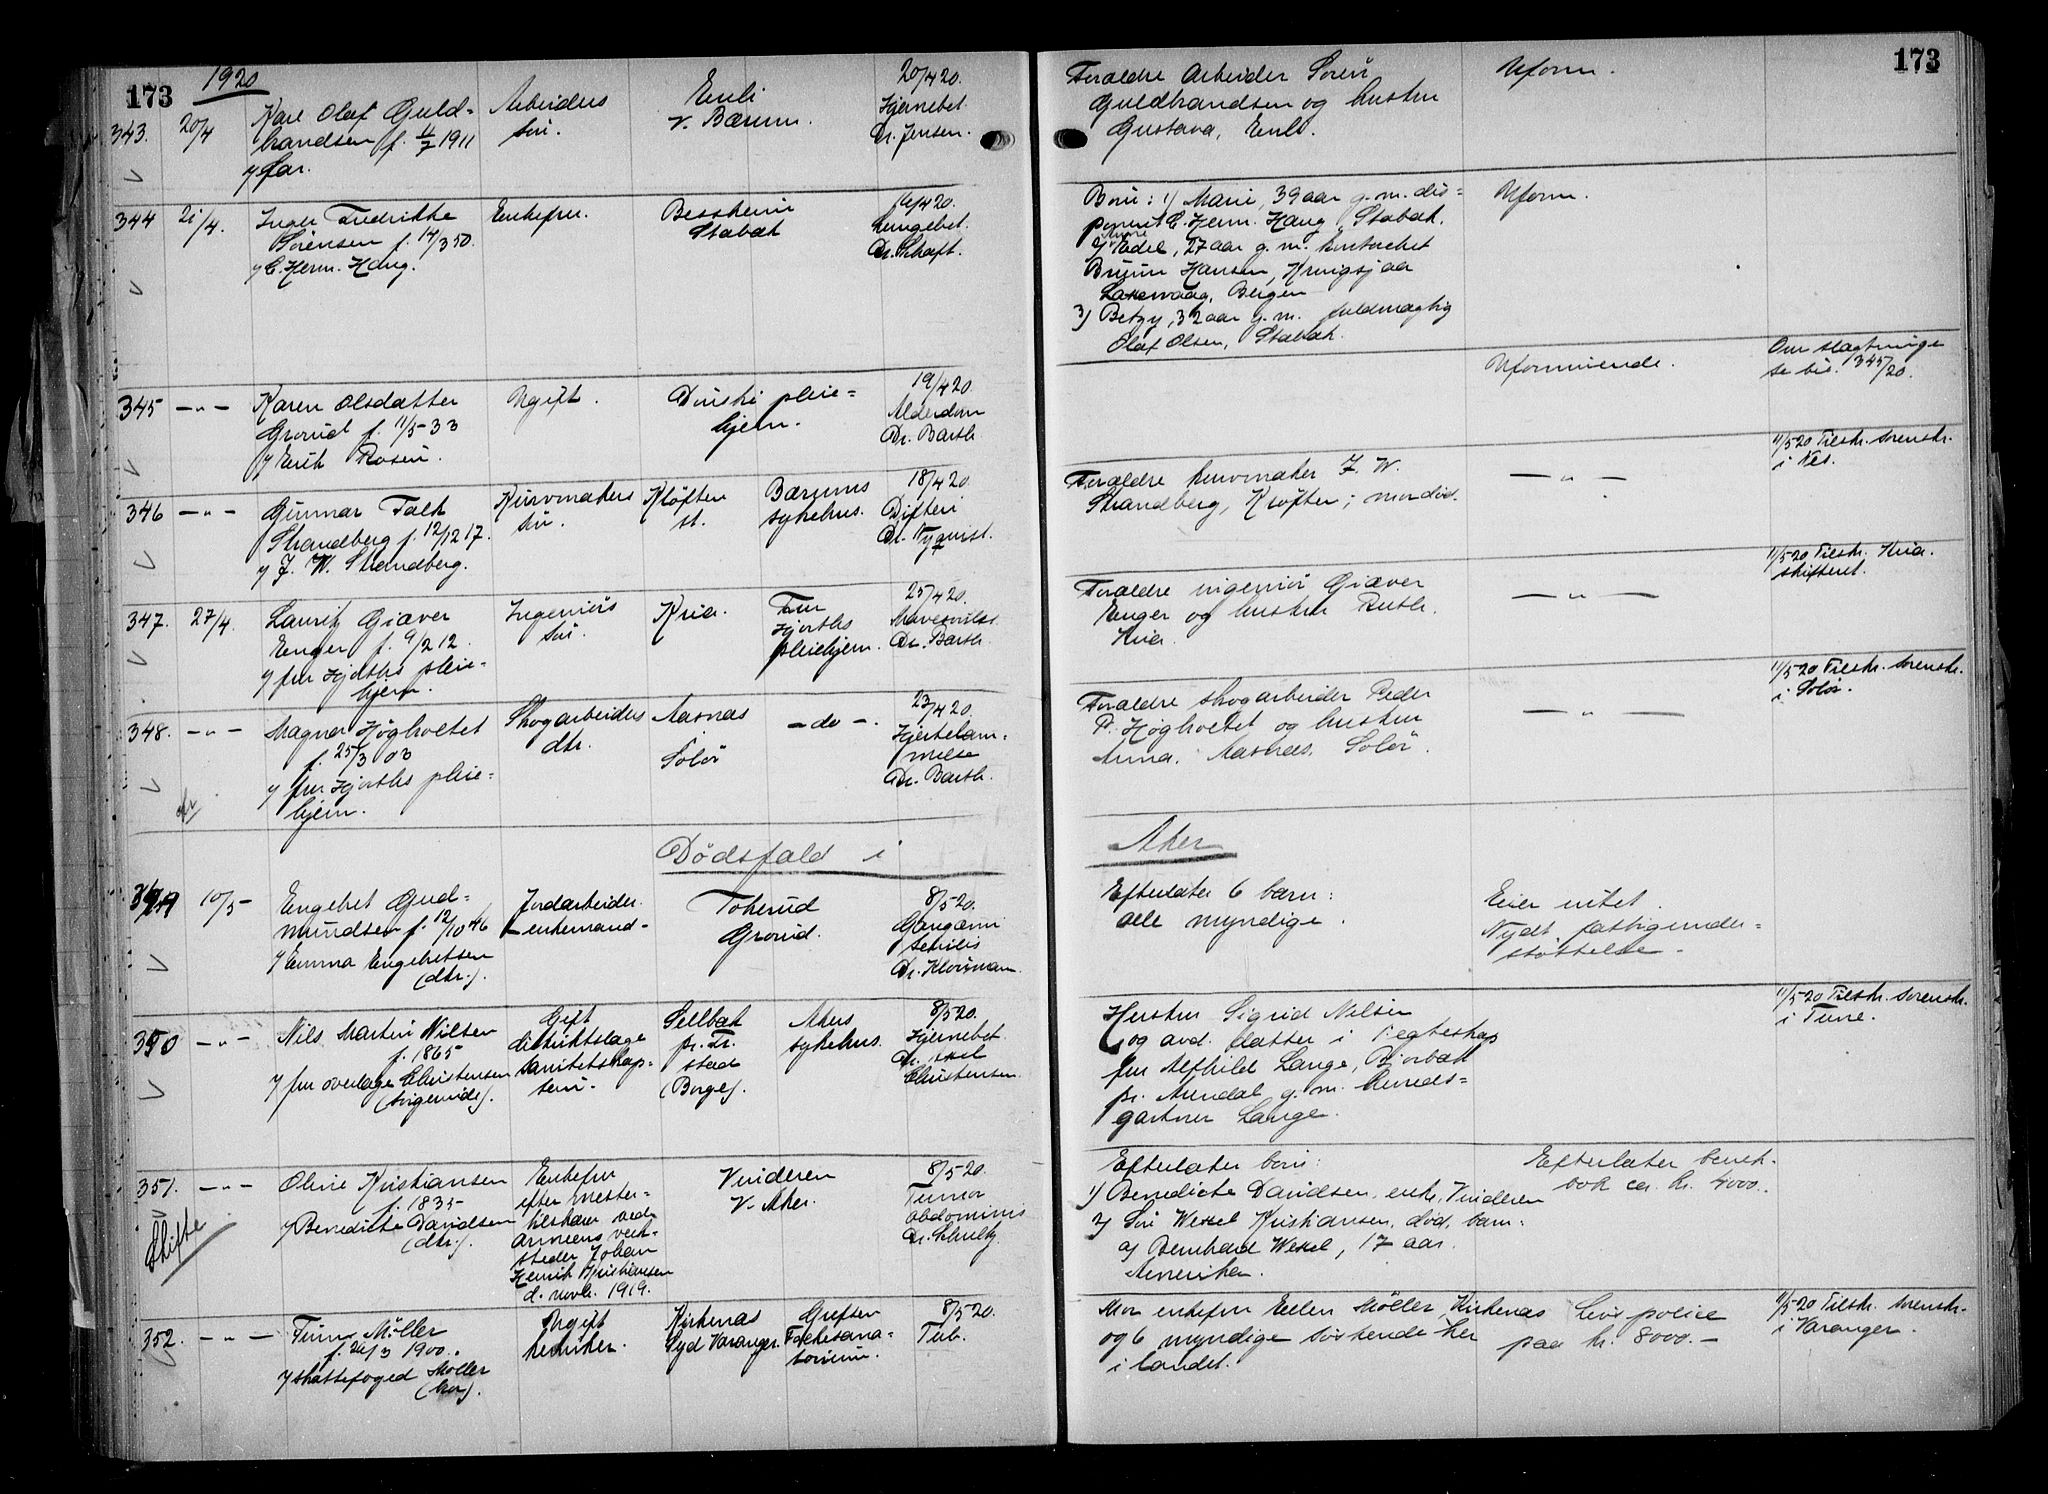 173
1920
343.
20/4
Karl Olaf Guld-
brandsen f. 4/7 1911
v/ far.
Arbeiders
søn.
Enli
V. Bærum.
20/4 20.
Hjernebet.
Dr. Jensen.
344
21/4.
Inger Fredrikke
Sørensen f. 14/3 50.
v/ C. Herm. Haug.
Enkefru.
Bessheim
Stabæk
16/4 20.
Lungebet.
Dr. Schaft.
345
— " —
Karen Olsdatter
Grorud f. 11/5 - 33
v/ Erik Rosen.
Ugift.
Dønski pleie-
hjem.
19/4 20.
Alderdom
Dr. Barth.
346
— " —
Gunnar Falk
Strandberg f. 12/12 17.
v/ J. W. Strandberg.
Kurvmakers
søn.
Kløften
st.
Bærums
sykehus.
18/4 20.
Difteri
Dr. Nyquist.
347.
27/4.
Lauritz Giæver
Enger f. 9/2 12.
v/ fru Hjorths pleie-
hjem.
Ingeniørs
søn.
Kria.
Fru
Hjorths
pleiehjem.
25/4 20.
Dr. Barth.
348.
— " —
Magner Høgholtet
f. 25/3 03
v/ fru Hjorths pleie-
hjem.
Skogarbeiders
dtr.
Aasnas
Solør
— do —.
23/4 20.
Hjertelam-
melse
Dr. Barth.
Dødsfald i
349
10/5
Engebret Gud-
mundsen f. 12/10 46
v/ Emma Engebretsen
(dtr.).
Jordarbeider
- enkemand -
Tokerud
Grorud.
8/5 20.
Gangæna
senilis
Dr. Klouman.
350
— " —
Nils Martin Nilsen
f. 1865
v/ fru overlæge Christensen
(svigerinde).
Gift
distriktslæge
sanitetskap-
tein.
Sellbak
pr. Fr.
stad
(Borge).
Akers
sykehus.
8/5 20.
Hjernebet.
Dr. Axel
Christensen.
351.
— " —
Skifte
Oline Kristiansen
f. 1835
v/ Benedicte Davidsen
(dtr.).
Enkefru
efter mester-
tilskærer ved
armeens verk-
steder Johan
Henrik Kristiansen
d. novbr. 1919.
Vinderen
V. Aker.
8/5 20.
Tumor
abdominis
Dr. Schultz.
352.
— " —
Finn Møller
f. 24/3 1900.
v/ skattefoged Møller
(bror).
Ugift
kemiker.
Kirkenas
Syd Varanger.
Grefsen
Folkesana-
torium.
8/5 20.
Tub.
173
Forældre Arbeider Søren
Guldbrandsen og hustru
Gustava, Enli.
Uform.
Børn: 1) Marie, 39 aar g. m. dis-
ponent C. Herm. Haug, Stabæk.
2) Edel, 27 aar g. m. kontorchef
Bruun Hansen, Kringsjaa
Laksevaag, Bergen
3) Betzy, 32 aar g. m. fuldmægtig
Olaf Olsen, Stabæk.
Uform.
Uformuende.
Om slægtninge
se bil. 345/20.
Forældre kurvmaker J. W.
Strandberg, Kløften; mor død.
— " —
11/5 20 Tilskr. sorenskr.
i Nes.
Forældre ingeniør Giæver
Enger og hustru Ruth.
Kria.
— " —
11/5 20 Tilskr. Kria.
skifteret.
Forældre skogarbeider Peder
P. Høgholtet og hustru
Anna, Aasnæs, Solør.
— " —
11/5 20 Tilskr. sorenskr.
i Solør.
Aker
Efterlater 6 barn:
alle myndige.
Eier intet.
Nydt fattigunder-
støttelse.
Hustru Sigrid Nilsen
og avd. datter i 1. egteskap
fru Alfhild Lange, Bjorbæk
pr. Arendal g. m. herreds-
gartner Lange.
11/5 20 Tilskr. sorenskr.
i Tune.
Efterlater børn:
1) Benedicte Davidsen, enke, Vinderen
2) Søn Wessel Kristiansen, død, barn:
a) Bernhard Wessel, 17 aar.
Amerika.
Efterlater bank-
bok ca. kr. 4000.
Mor enkefru Ellen Møller, Kirkenas
og 6 myndige søskende her
i landet.
Livspolice
paa kr. 8000.—
11/5 20 Tilskr. sorenskr.
i Varanger.